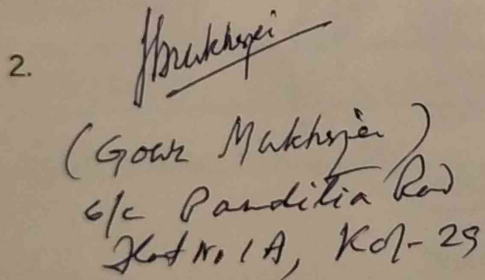 2.
Mukherjee
(Gour Mukherjee)
6/c Panditia Road
Flat No 1A, Kol-29